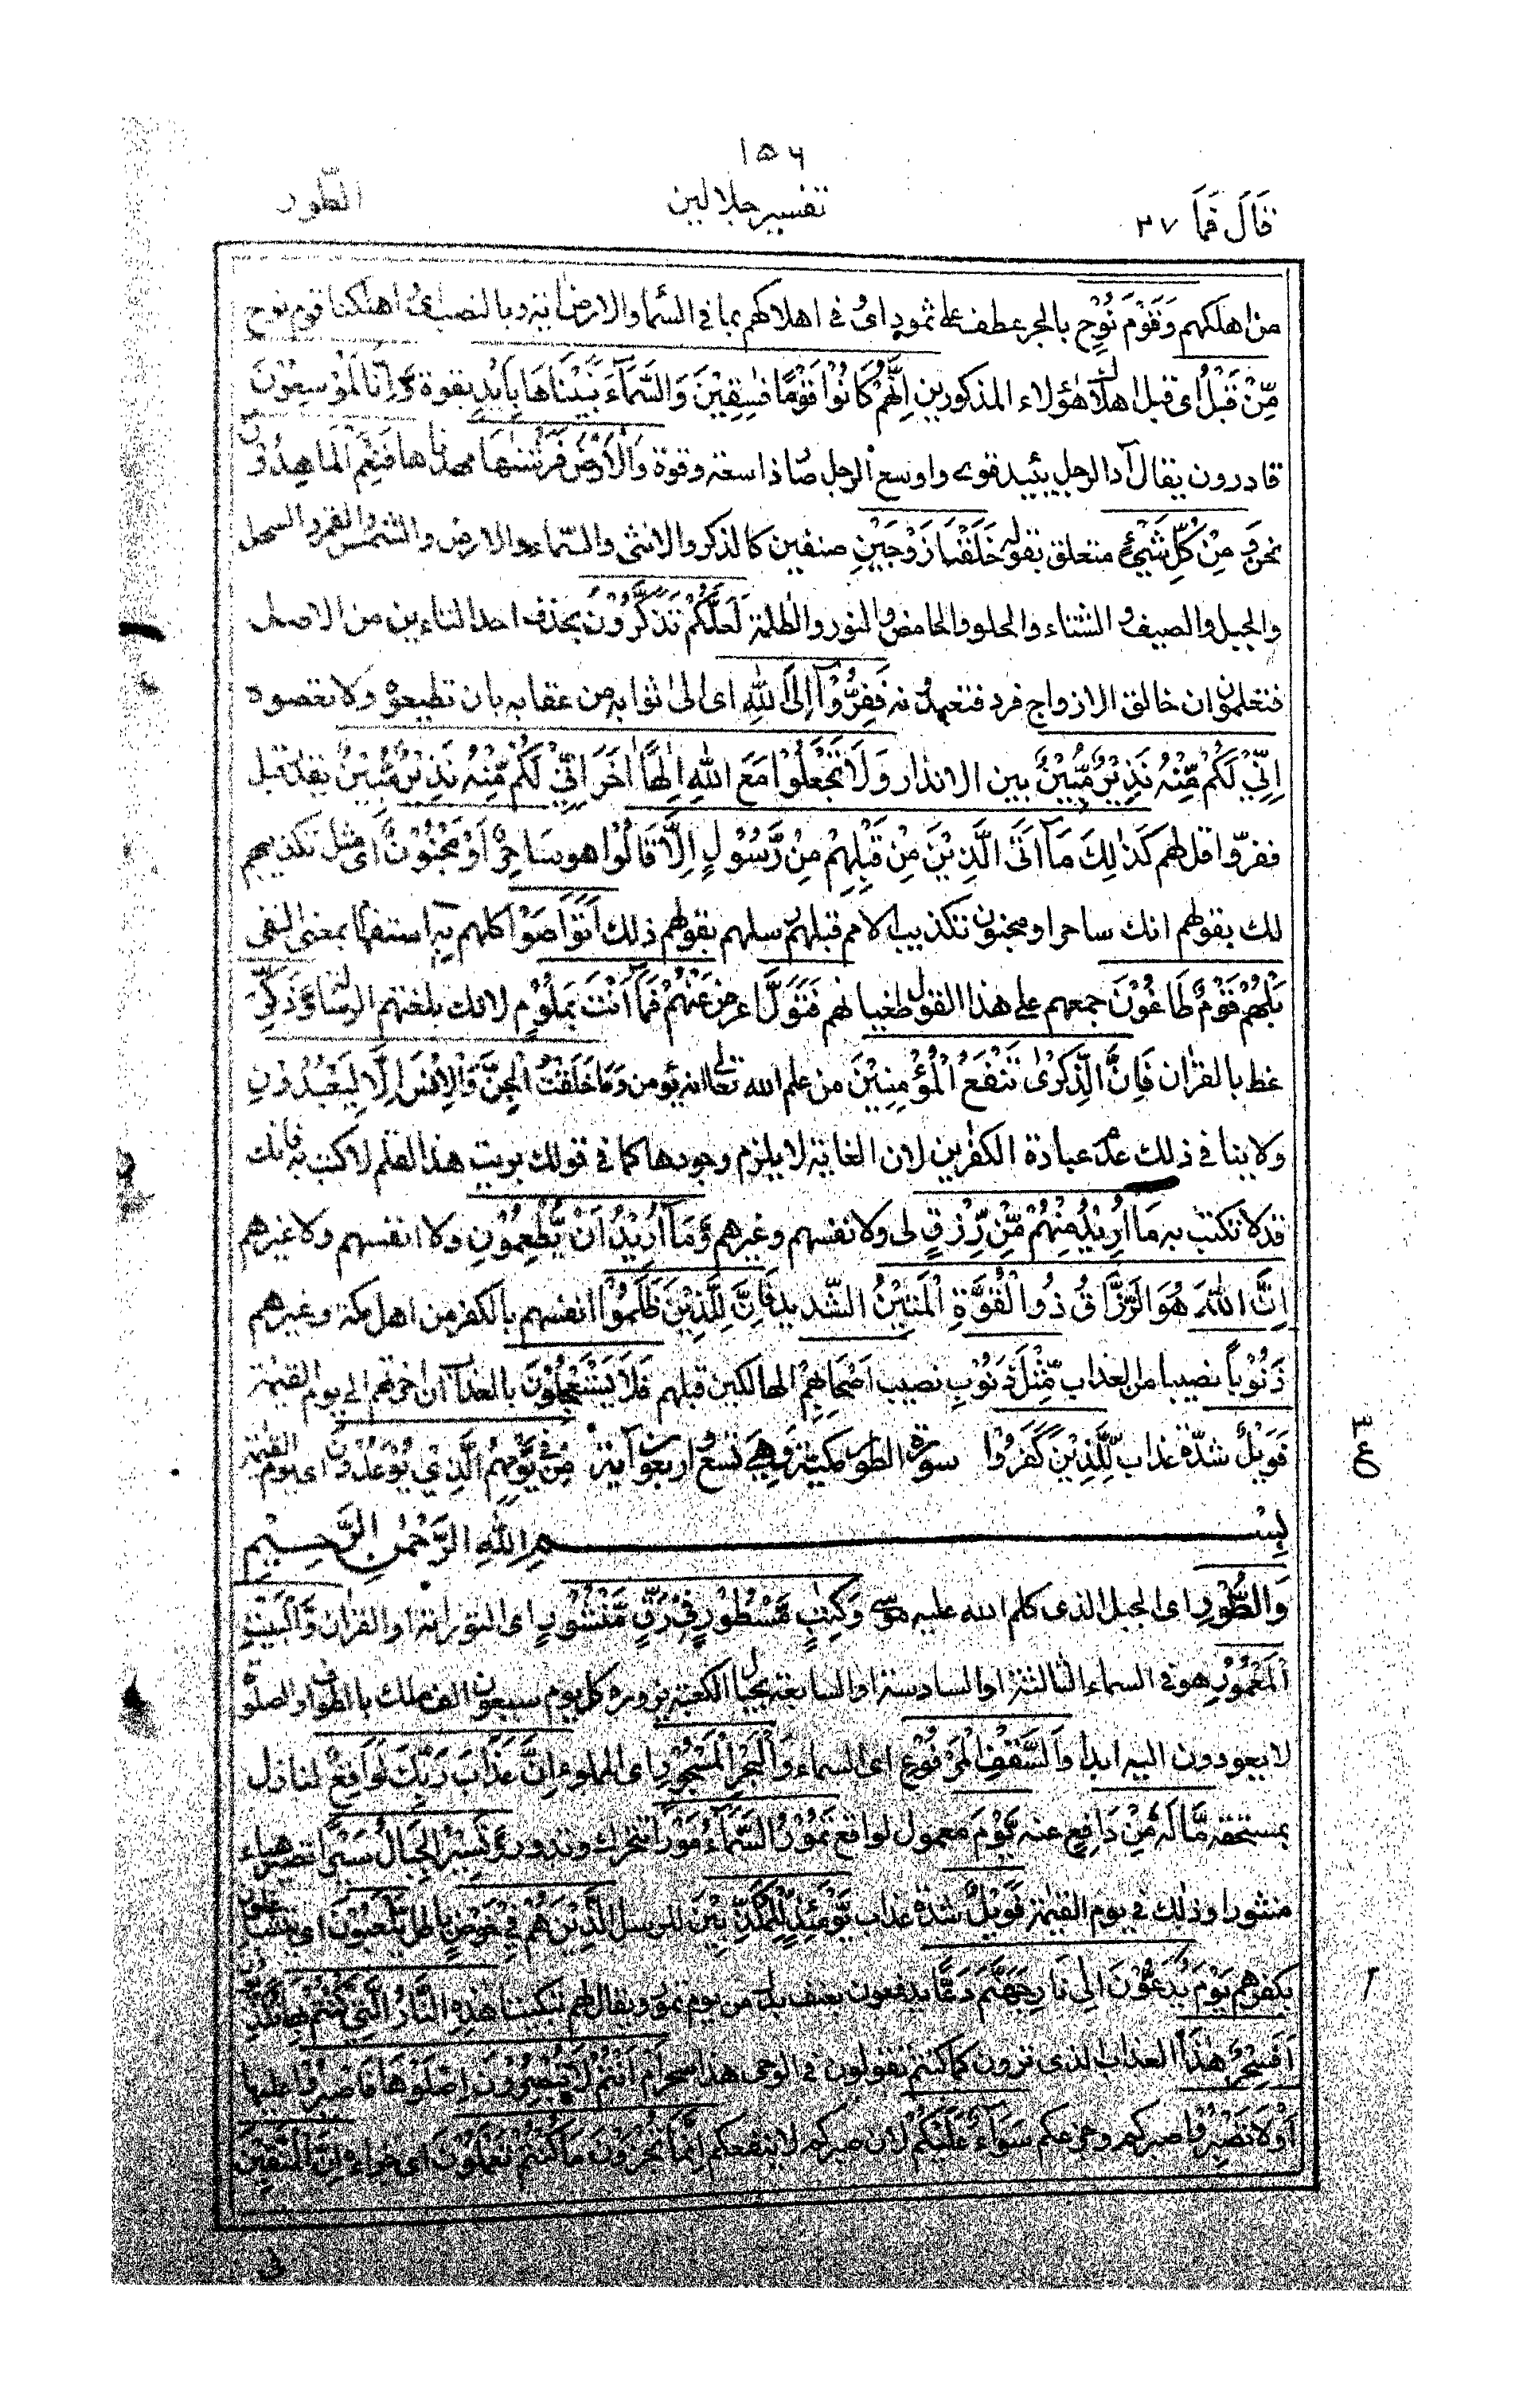 ۱۵۶
قَالَ فَمَا ۲۷ تفسير جلالين الطّور
من اهلكهم وَقَوْمَ نُوْحٍ بالجر عطف على ثمود اى فى اهلاكهم بما فى السّماء والارض اٰية وبالنصب اى اهلكنا قوم نوح
مِّنْ قَبْلُ اى قبل اهلاك هٰؤلاء المذكورين اِنَّهُمْ كَانُوْا قَوْمًا فٰسِقِيْنَ وَالسَّمَآءَ بَنَيْنَاهَا بِاَيْدٍ بقوة وَّاِنَّا لَمُوْسِعُوْنَ
قادرون يقال آد الرجل يئيد قوى واوسع الرجل صار ذا سعة وقوة وَالْاَرْضَ فَرَشْنٰهَا مهدناها فَنِعْمَ الْمَاهِدُوْنَ
نحن وَمِنْ كُلِّ شَيْءٍ متعلق بقوله خَلَقْنَا زَوْجَيْنِ صنفين كالذكر والانثى والسّماء والارض والشمس والقمر والسهل
والجبل والصيف والشتاء والحلو والحامض والنور والظلمة لَعَلَّكُمْ تَذَكَّرُوْنَ بحذف احد التاءين من الاصل
فتعلمون ان خالق الازواج فرد فتعبدونه فَفِرُّوْآ اِلَى اللّٰهِ اى الىٰ ثوابه من عقابه بان تطيعوه ولا تعصوه
اِنِّيْ لَكُمْ مِّنْهُ نَذِيْرٌ مُّبِيْنٌ بين الانذار وَلَا تَجْعَلُوْا مَعَ اللّٰهِ اِلٰهًا اٰخَرَ اِنِّيْ لَكُمْ مِّنْهُ نَذِيْرٌ مُّبِيْنٌ يقدر قبل
ففرّوا قل لهم كَذٰلِكَ مَآ اَتَى الَّذِيْنَ مِنْ قَبْلِهِمْ مِنْ رَّسُوْلٍ اِلَّا قَالُوْا هو سَاحِرٌ اَوْ مَجْنُوْنٌ اى مثل تكذيبهم
لك بقولهم انك ساحر او مجنون تكذيب الامم قبلهم رسلهم بقولهم ذلك اَتَوَاصَوْا كلهم بِهٖ استفهام بمعنى النفى
بَلْ هُمْ قَوْمٌ طَاغُوْنَ جمعهم على هذا القول طغيانهم فَتَوَلَّ اعرض عَنْهُمْ فَمَآ اَنْتَ بِمَلُوْمٍ لانك بلغتهم الرسالة وَّذَكِّرْ
عظ بالقراٰن فَاِنَّ الذِّكْرٰى تَنْفَعُ الْمُؤْمِنِيْنَ من علم الله تعالى انه يؤمن وَمَا خَلَقْتُ الْجِنَّ وَالْاِنْسَ اِلَّا لِيَعْبُدُوْنِ
ولا ينافى ذلك عدم عبادة الكفرين لان الغاية لا يلزم وجودها كما فى قولك بريت هذا القلم لاكتب به فانك
قد لا تكتب به مَا اُرِيْدُ مِنْهُمْ مِّنْ رِّزْقٍ لى ولا نفسهم وغيرهم وَّمَآ اُرِيْدُ اَنْ يُّطْعِمُوْنِ ولا انفسهم ولا غيرهم
اِنَّ اللّٰهَ هُوَ الرَّزَّاقُ ذُوا لْقُوَّةِ الْمَتِيْنُ الشّديد فَاِنَّ لِلَّذِيْنَ ظَلَمُوْا انفسهم بالكفر من اهل مكة وغيرهم
ذَنُوْبًا نصيبا من العذاب مِّثْلَ ذَنُوْبِ نصيب اَصْحَابِهِمْ الهالكين قبلهم فَلَا يَسْتَعْجِلُوْنِ بالعذاب ان اخرتهم الى يوم القيٰمة
فَوَيْلٌ شدّة عذاب لِّلَّذِيْنَ كَفَرُوْا مِنْ يَّوْمِهِمُ الَّذِيْ يُوْعَدُوْنَ اى يوم القيٰمة سورة الطور مكية وهي تسع واربعون آية
بِسْمِ اللّٰهِ الرَّحْمٰنِ الرَّحِيْمِ
وَالطُّوْرِ اى الجبل الذى كلم الله عليه موسى وَكِتٰبٍ مَّسْطُوْرٍ فِيْ رَقٍّ مَّنْشُوْرٍ اى التورىة او القراٰن وَّالْبَيْتِ
الْمَعْمُوْرِ هو فى السماء الثالثة او السادسة او السابعة بحيال الكعبة يزوره كل يوم سبعون الف ملك بالطواف والصلوة
لا يعودون اليه ابدا وَالسَّقْفِ الْمَرْفُوْعِ اى السماء وَالْبَحْرِ الْمَسْجُوْرِ اى المملوء اِنَّ عَذَابَ رَبِّكَ لَوَاقِعٌ لنازل
بمستحقه مَّا لَهٗ مِنْ دَافِعٍ عنه يَّوْمَ معمول لواقع تَمُوْرُ السَّمَآءُ مَوْرًا تتحرك وتدور وَّتَسِيْرُ الْجِبَالُ سَيْرًا تصير هباء
منثورا وذلك فى يوم القيٰمة فَوَيْلٌ شدة عذاب يَّوْمَئِذٍ لِّلْمُكَذِّبِيْنَ للرسل الَّذِيْنَ هُمْ فِيْ خَوْضٍ باطل يَّلْعَبُوْنَ اى يتشاغلون
بكفرهم يَوْمَ يُدَعُّوْنَ اِلٰى نَارِ جَهَنَّمَ دَعًّا يدفعون بعنف بدل من يوم تمور ويقال لهم تبكيتا هٰذِهِ النَّارُ الَّتِيْ كُنْتُمْ بِهَا تُكَذِّبُوْنَ
اَفَسِحْرٌ هٰذَا العذاب الذى ترون كما كنتم تقولون فى الوحى هذا سحر اَمْ اَنْتُمْ لَا تُبْصِرُوْنَ اِصْلَوْهَا فَاصْبِرُوْا عليها
اَوْ لَا تَصْبِرُوْا صبركم وجزعكم سَوَآءٌ عَلَيْكُمْ لان صبركم لا ينفعكم اِنَّمَا تُجْزَوْنَ مَا كُنْتُمْ تَعْمَلُوْنَ اى جزاءه اِنَّ الْمُتَّقِيْنَ
فى